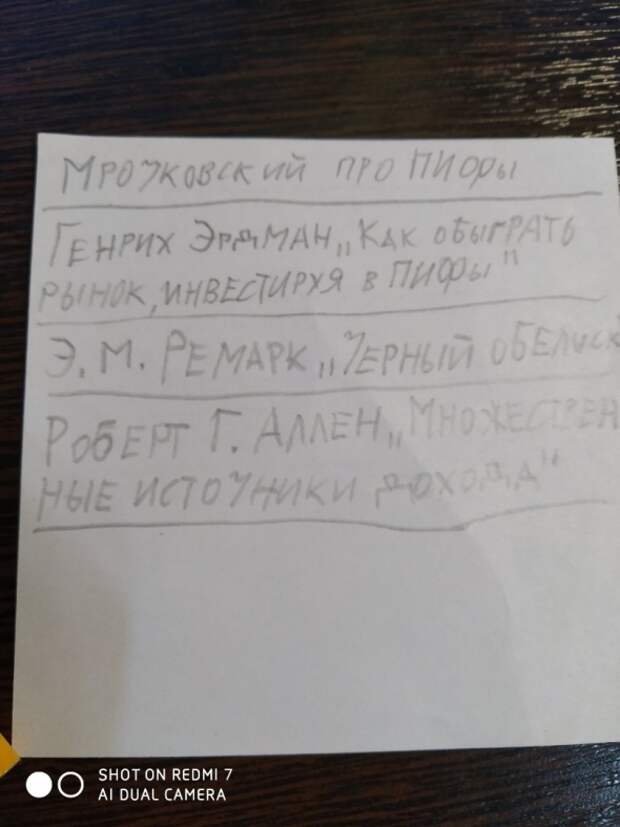 Мрочковский про ПИФы
Генрих Эрдман „Как обыграть
рынок, инвестируя в ПИФы"
Э. М. Ремарк „Черный обелиск
Роберт Г. Аллен „Множествен
ные источники дохода"
SHOT ON REDMI 7
AI DUAL CAMERA